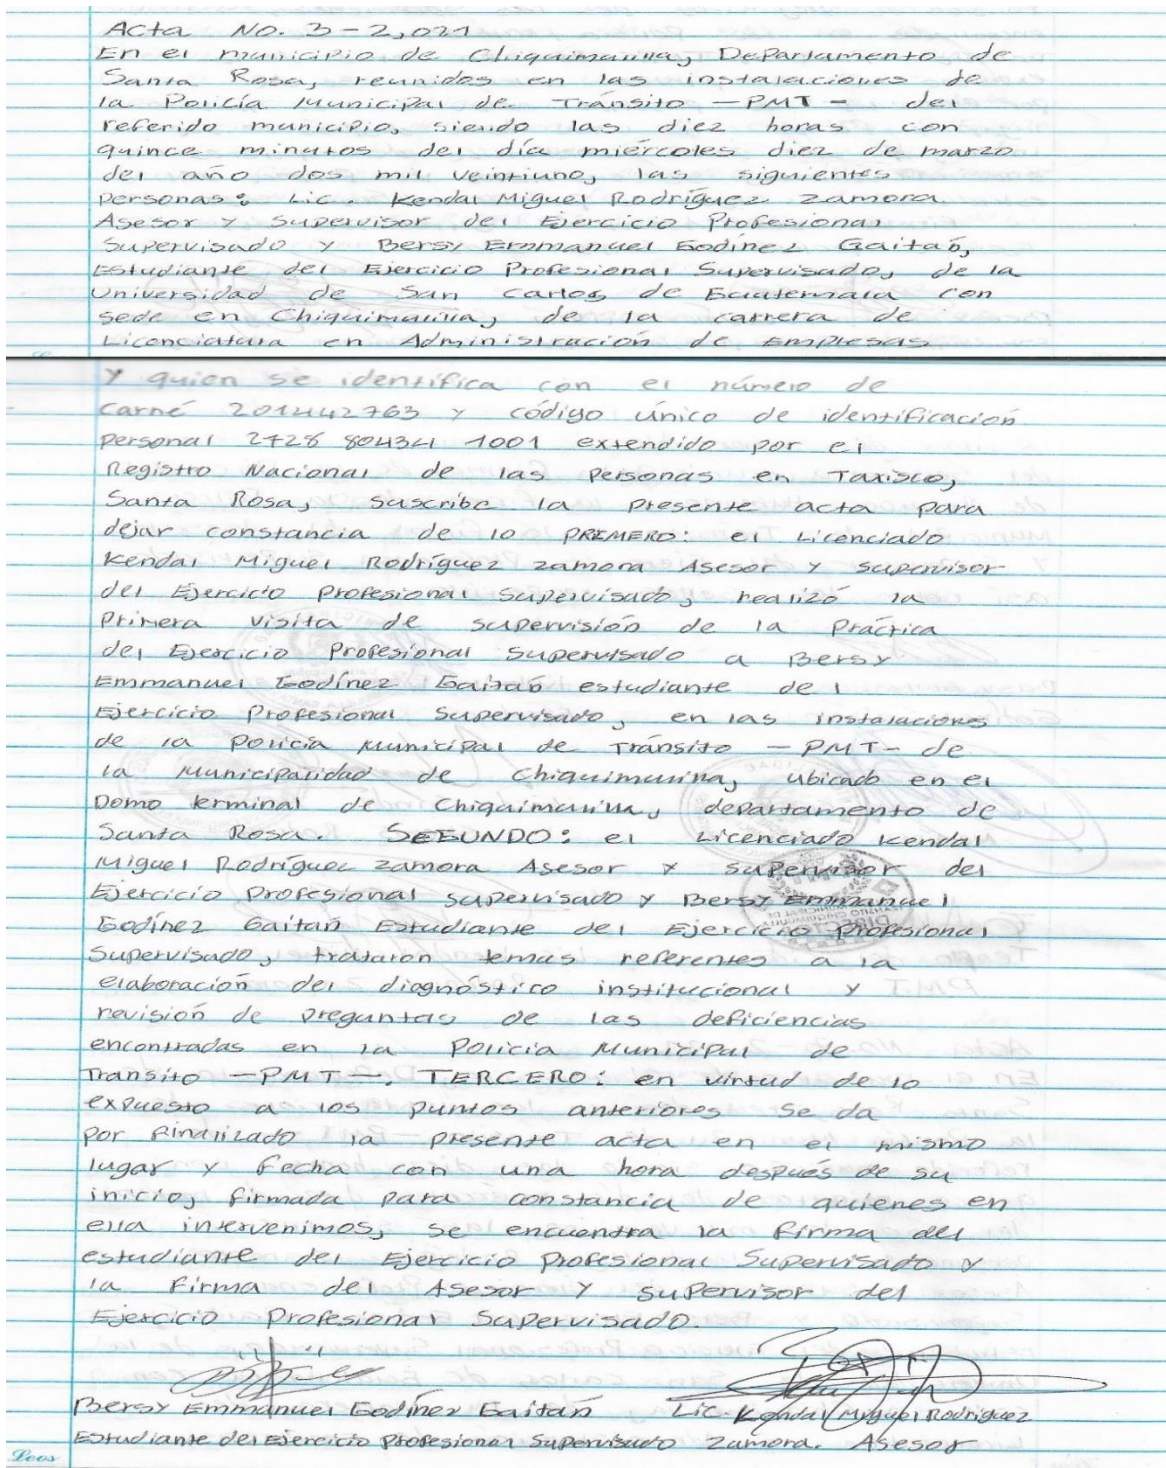 Acta No. 3-2,021
En el municipio de Chiquimulilla, Departamento de
Santa Rosa, reunidos en las instalaciones de
la Policía Municipal de Tránsito -PMT- del
referido municipio, siendo las diez horas con
quince minutos del día miércoles diez de marzo
del año dos mil veintiuno, las siguientes
personas: Lic. Kendal Miguel Rodríguez Zamora
Asesor y Supervisor del Ejercicio Profesional
Supervisado y Bersy Emmanuel Godínez Gaitán,
Estudiante del Ejercicio Profesional Supervisado, de la
Universidad de San Carlos de Guatemala con
sede en Chiquimulilla, de la carrera de
Licenciatura en Administración de Empresas
Y quien se identifica con el número de
Carné 201242763 y código único de identificación
personal 2728 80434 1001 extendido por el
Registro Nacional de las Personas en Taxisco,
Santa Rosa, suscribe la presente acta para
dejar constancia de lo PRIMERO: el Licenciado
Kendal Miguel Rodríguez Zamora Asesor y supervisor
del Ejercicio Profesional Supervisado, realizó la
Primera visita de supervisión de la Práctica
del Ejercicio Profesional Supervisado a Bersy
Emmanuel Godínez Gaitán estudiante del
Ejercicio Profesional Supervisado, en las instalaciones
de la Policía Municipal de Tránsito -PMT- de
la Municipalidad de Chiquimulilla, ubicado en el
Domo terminal de Chiquimulilla, departamento de
Santa Rosa. SEGUNDO: el Licenciado Kendal
Miguel Rodríguez Zamora Asesor y supervisor del
Ejercicio Profesional supervisado y Bersy Emmanuel
Godínez Gaitán Estudiante del Ejercicio Profesional
Supervisado, trataron temas referentes a la
elaboración del diagnóstico institucional y
revisión de preguntas de las deficiencias
encontradas en la Policía Municipal de
Transito -PMT-. TERCERO: en virtud de lo
expuesto a los puntos anteriores se da
por finalizado la presente acta en el mismo
lugar y fecha con una hora después de su
inicio, firmada para constancia de quienes en
ella intervenimos, se encuentra la firma del
estudiante del Ejercicio Profesional Supervisado y
la Firma del Asesor y Supervisor del
Ejercicio Profesional Supervisado.
Bersy Emmanuel Godínez Gaitán Lic. Kendal Miguel Rodríguez
Estudiante del Ejercicio Profesional Supervisado Zamora. Asesor
Loos